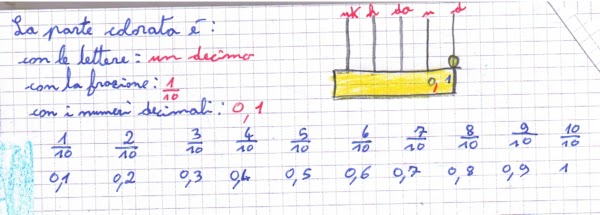 La parte colorata è:
con le lettere = un decimo
con la frazione: 1/10
con i numeri decimali: 0,1
uk h da u d
0,1
1/10 2/10 3/10 4/10 5/10 6/10 7/10 8/10 9/10 10/10
0,1 0,2 0,3 0,4 0,5 0,6 0,7 0,8 0,9 1